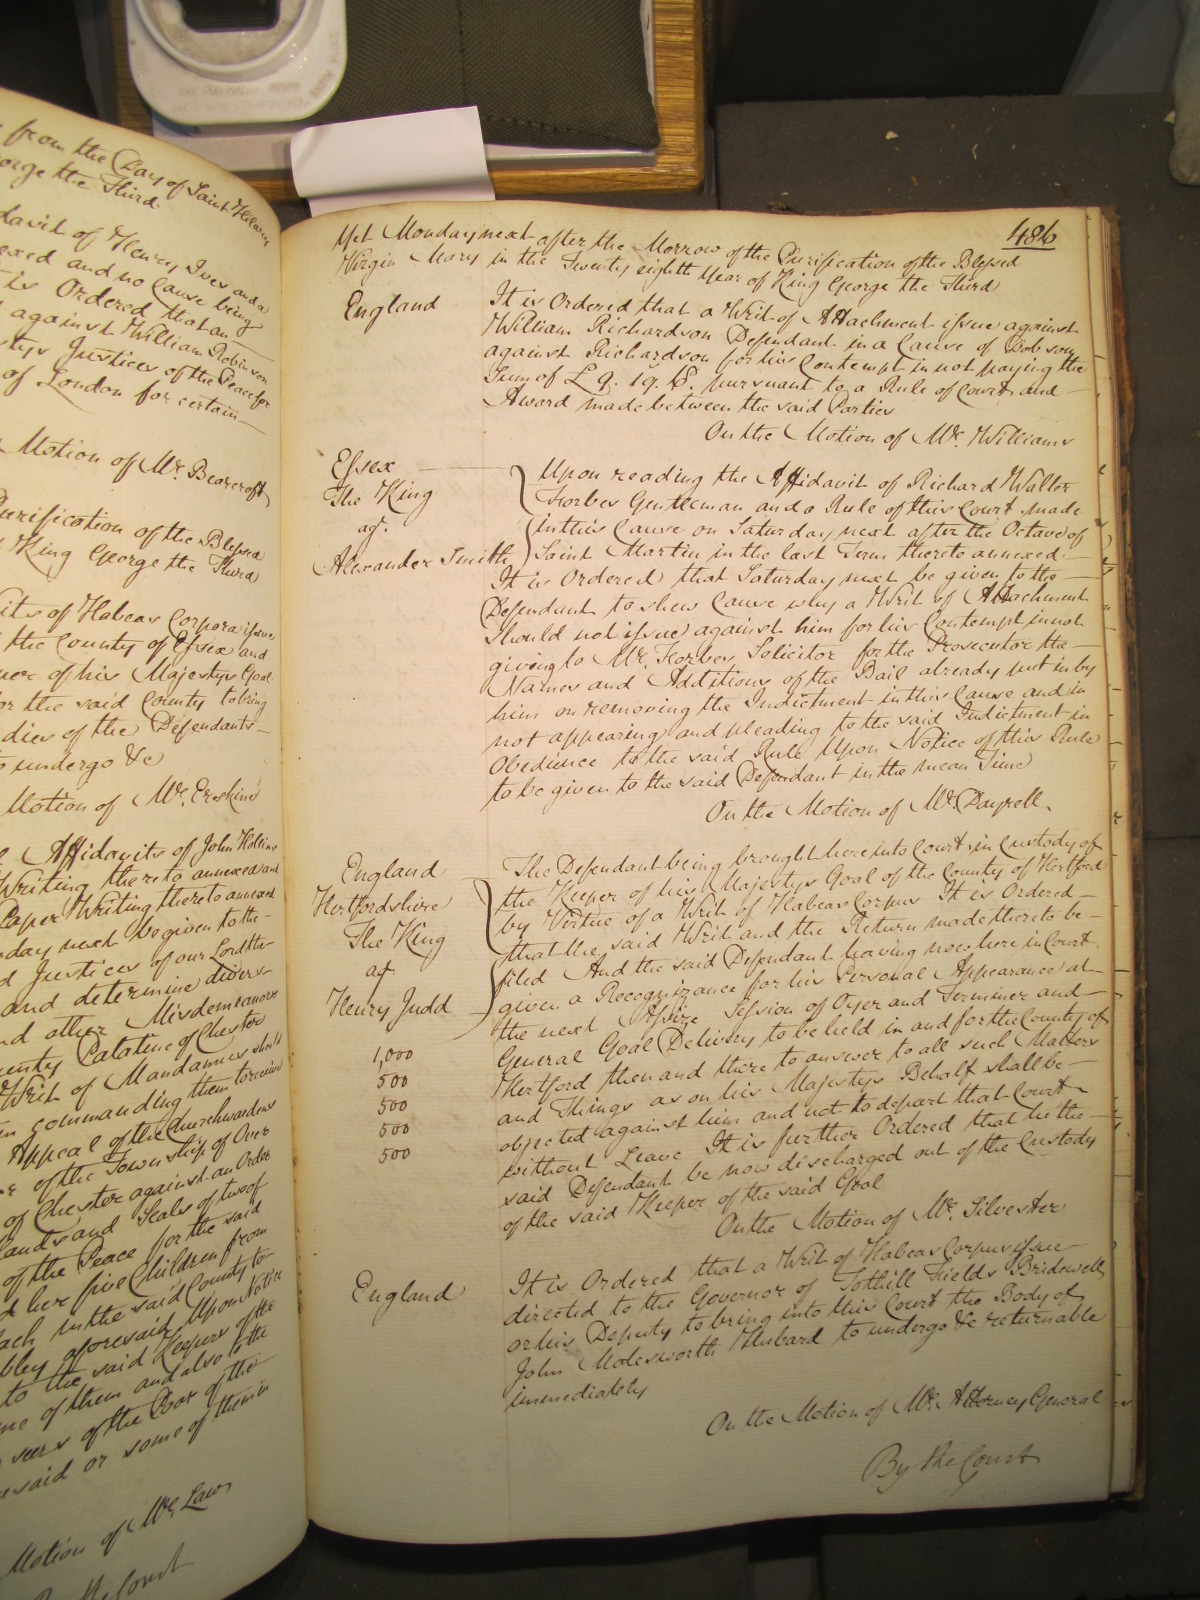 from the Day of Saint Hilary
George the Third
davit of Henry Ives and a
exed and no Cause being
is Ordered that an
against William Robinson
tys Justices of the Peace for
of London for certain
Motion of Mr. Bearcroft
Purification of the Blessed
King George the Third
its of Habeas Corpora issue
the County of Essex and
per of his Majestys Goal
or the said County to bring
dies of the Defendants
undergo &c
Motion of Mr. Erskine
Affidavits of John Hollins
Writing thereto annexed and
Paper Writing thereto annexed
nday next be given to the
d Justices of our Lord the
and determine divers
nd other Misdemeanors
County Palatine of Chester
Writ of Mandamus should
commanding them to receive
Appeal of the Churchwardens
of the Township of Over
of Chester against an Order
Hands and Seals of two of
of the Peace for the said
d her five Children from
in the said County to
aforesaid Upon Notice
to the said Keepers of the
me of them and also to the
seers of the Poor of the
said or some of them in
Motion of Mr. Law
By the Court
486
Yet Monday next after the Morrow of the Purification of the Blessed
Virgin Mary in the Twenty eighth Year of King George the Third
England
It is Ordered that a Writ of Attachment issue against
William Richardson Defendant in a Cause of Dobson
against Richardson for his Contempt in not paying the
Sum of £ 9. 19. 8. pursuant to a Rule of Court and
Award made between the said Parties
On the Motion of Mr. Williams
Essex
The King
agt.
Alexander Smith
Upon reading the Affidavit of Richard Walter
Forbes Gentleman and a Rule of this Court made
in this Cause on Saturday next after the Octave of
Saint Martin in the last Term thereto annexed
It is Ordered that Saturday next be given to the
Defendant to shew Cause why a Writ of Attachment
Should not issue against him for his Contempt in not
giving to Mr. Forbes Solicitor for the Prosecutor the
Names and Additions of the Bail already put in by
him on removing the Indictment in this Cause and in
not appearing and pleading to the said Indictment in
Obedience to the said Rule Upon Notice of this Rule
to be given to the said Defendant in the mean Time
On the Motion of Mr. Dayrell.
England
Hertfordshire
The King
agt
Henry Judd
1,000
500
500
500
500
The Defendant being brought here into Court in Custody of
the Keeper of his Majestys Goal of the County of Hertford
by Virtue of a Writ of Habeas Corpus It is Ordered
that the said Writ and the Return made thereto be
filed And the said Defendant having now here in Court
given a Recognizance for his Personal Appearance at
the next Assize Session of Oyer and Terminer and
General Goal Delivery to be held in and for the County of
Hertford then and there to answer to all such Matters
and Things as on his Majestys Behalf shall be
objected against him and not to depart that Court
without Leave It is further Ordered that he the
said Defendant be now discharged out of the Custody
of the said Keeper of the said Goal
On the Motion of Mr. Silvester
England
It is Ordered that a Writ of Habeas Corpus issue
directed to the Governor of Tothill Fields Bridewell
or his Deputy to bring into this Court the Body of
John Molesworth Hubard to undergo &c returnable
immediately
On the Motion of Mr. Attorney General
By the Court